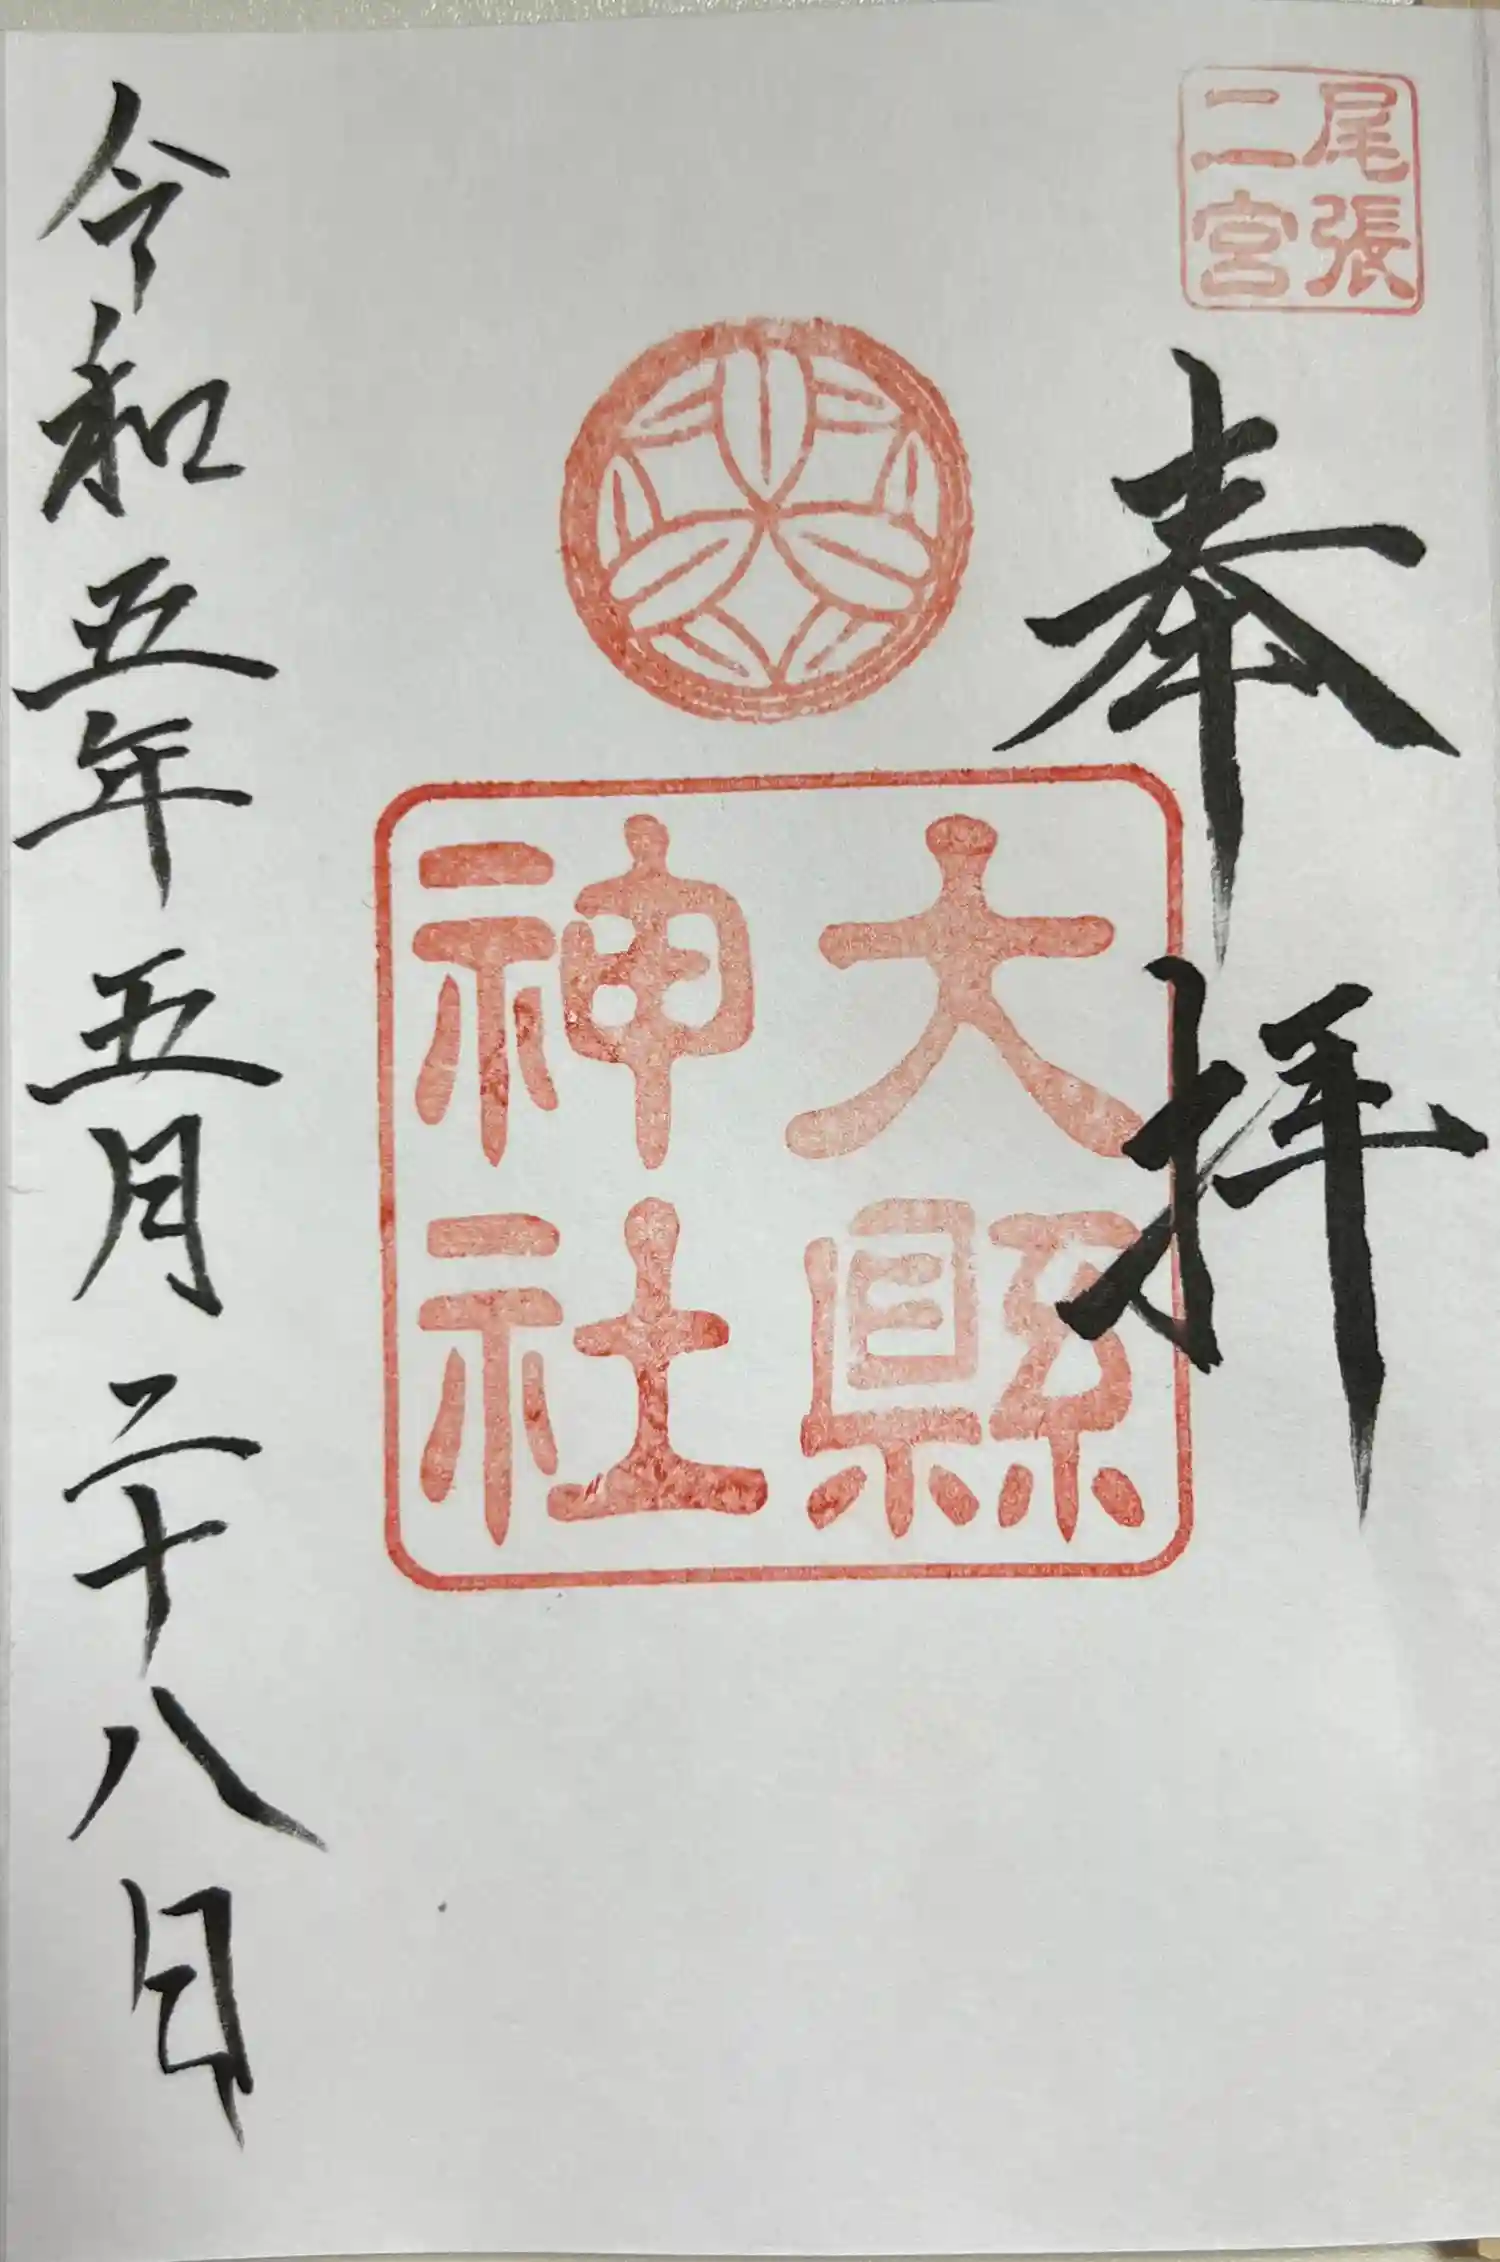 尾張
二宮
奉拝
大縣
神社
令和五年五月二十八日